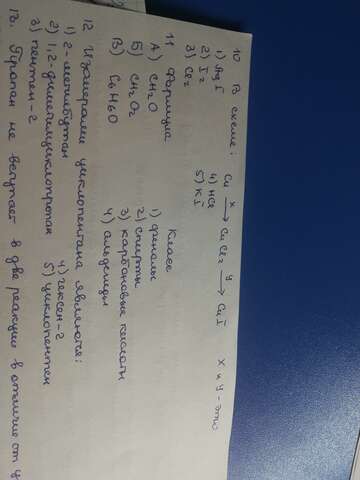 10 В схеме: Cu X→ CuCl2 У→ CuI X и У - это
1) AgI 4) HCl
2) I2 5) KI
3) Cl2
11 Формула Класс
А) CH2O 1) фенолы
Б) CH2O2 2) спирты
В) C6H6O 3) карбоновые кислоты
4) альдегиды
12 Изомерами циклопентана являются:
1) 2-метилбутан
2) 1,2-диметилциклопропан 4) гексен-2
3) пентен-2 5) циклопентен
13. Пропан не вступает в две реакции в отличие от